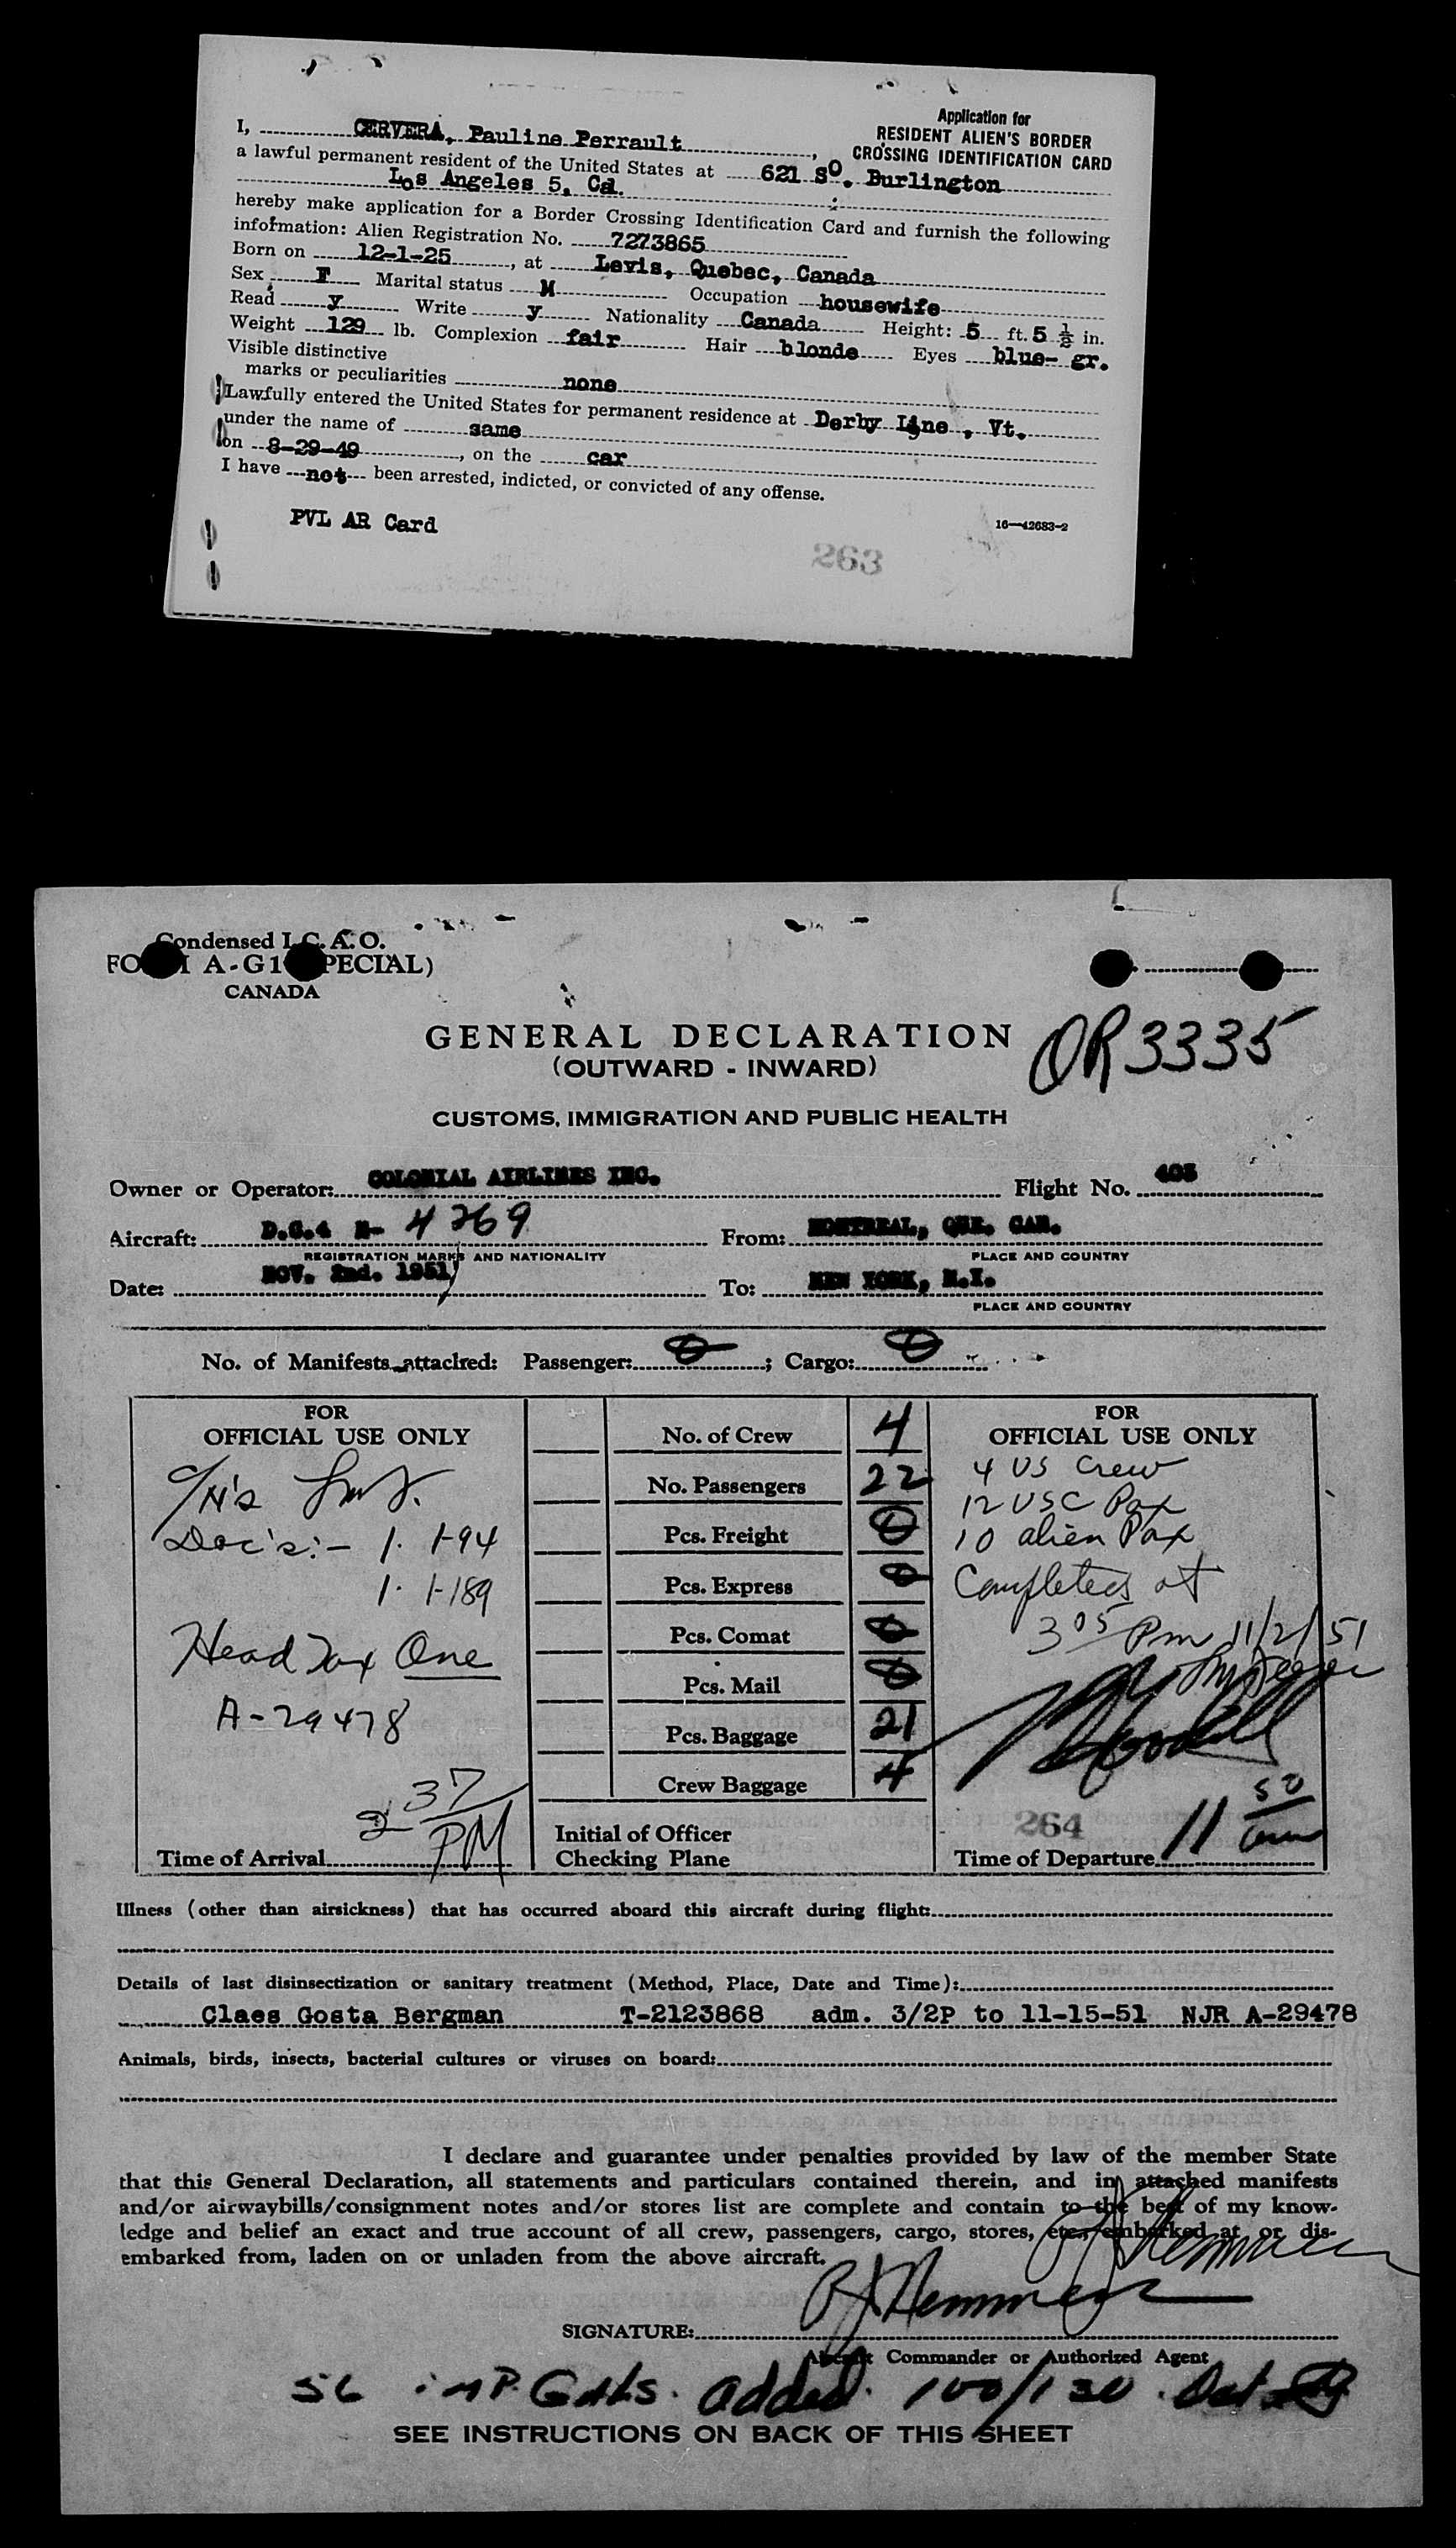 Application for
RESIDENT ALIEN'S BORDER
CROSSING IDENTIFICATION CARD
I, CERVERA, Pauline Perrault,
a lawful permanent resident of the United States at 621 So. Burlington
Los Angeles 5, Cal.
hereby make application for a Border Crossing Identification Card and furnish the following
information: Alien Registration No. 7273865
Born on 12-1-25, at Levis, Quebec, Canada
Sex F Marital status M Occupation housewife
Read y Write y Nationality Canada Height: 5 ft. 5 1/2 in.
Weight 129 lb. Complexion fair Hair blonde Eyes blue-gr.
Visible distinctive
marks or peculiarities none
Lawfully entered the United States for permanent residence at Derby Line, Vt.
under the name of same
on 8-29-49, on the car
I have not been arrested, indicted, or convicted of any offense.
PVL AR Card
16—42683-2
263
Condensed I.C.A.O.
FORM A-G1 (SPECIAL)
CANADA
GENERAL DECLARATION
OR 3335
(OUTWARD - INWARD)
CUSTOMS, IMMIGRATION AND PUBLIC HEALTH
Owner or Operator: COLONIAL AIRLINES INC. Flight No. 403
Aircraft: D.C.4 N- 4269 From: MONTREAL, QUE. CAN.
REGISTRATION MARKS AND NATIONALITY PLACE AND COUNTRY
Date: NOV. 2nd. 1951 To: NEW YORK, N.Y.
PLACE AND COUNTRY
No. of Manifests attached: Passenger: 0; Cargo: 0
FOR
OFFICIAL USE ONLY
Doc's:- 1. 1-94
1. 1-189
Head Tax One
A-29478
2 37 PM
Time of Arrival
No. of Crew 4
No. Passengers 22
Pcs. Freight 0
Pcs. Express 0
Pcs. Comat 0
Pcs. Mail 0
Pcs. Baggage 21
Crew Baggage 4
Initial of Officer
Checking Plane
FOR
OFFICIAL USE ONLY
4 US Crew
12 USC Pax
10 alien Pax
Completed at
3 05 Pm 11/2/51
264
11 50 am
Time of Departure
Illness (other than airsickness) that has occurred aboard this aircraft during flight:
Details of last disinsectization or sanitary treatment (Method, Place, Date and Time):
Claes Gosta Bergman T-2123868 adm. 3/2P to 11-15-51 NJR A-29478
Animals, birds, insects, bacterial cultures or viruses on board:
I declare and guarantee under penalties provided by law of the member State
that this General Declaration, all statements and particulars contained therein, and in attached manifests
and/or airwaybills/consignment notes and/or stores list are complete and contain to the best of my know-
ledge and belief an exact and true account of all crew, passengers, cargo, stores, etc. embarked at or dis-
embarked from, laden on or unladen from the above aircraft.
SIGNATURE:
Aircraft Commander or Authorized Agent
56 imp. Galls. added. 100/130
SEE INSTRUCTIONS ON BACK OF THIS SHEET